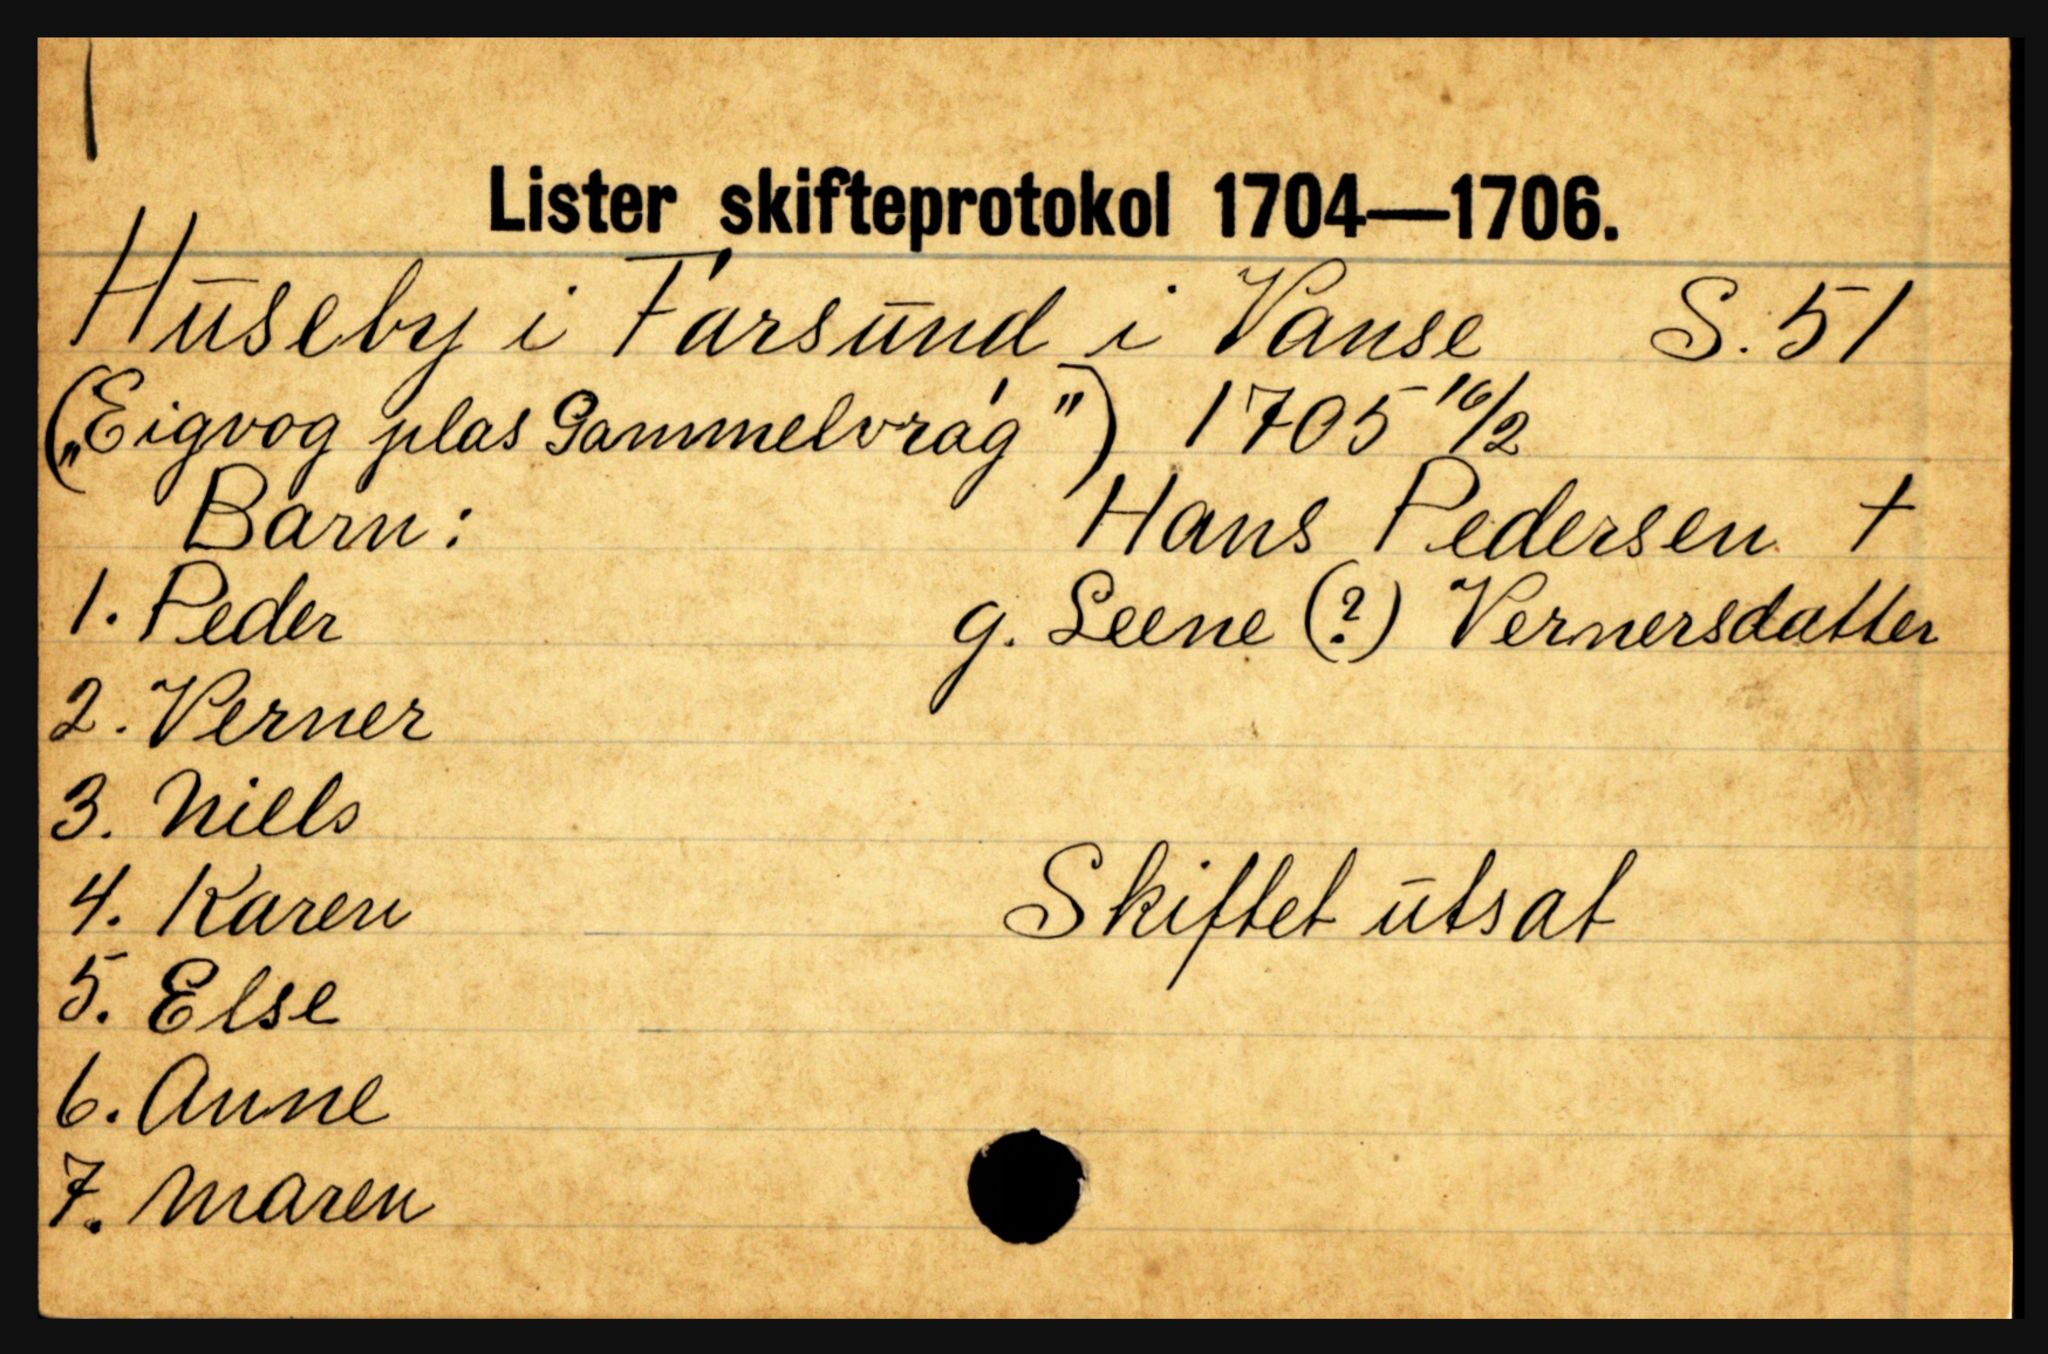 Lister skifteprotokol 1704—1706.
Huseby i Farsund i Vanse S. 51
(„Eigvog plas Gammelvråg") 1705 16/2
Barn: Hans Pedersen +
1. Peder g. Leene (?) Vernersdatter
2. Verner
3. Niels
4. Karen Skiftet utsat
5. Else
6. Anne
7. Maren